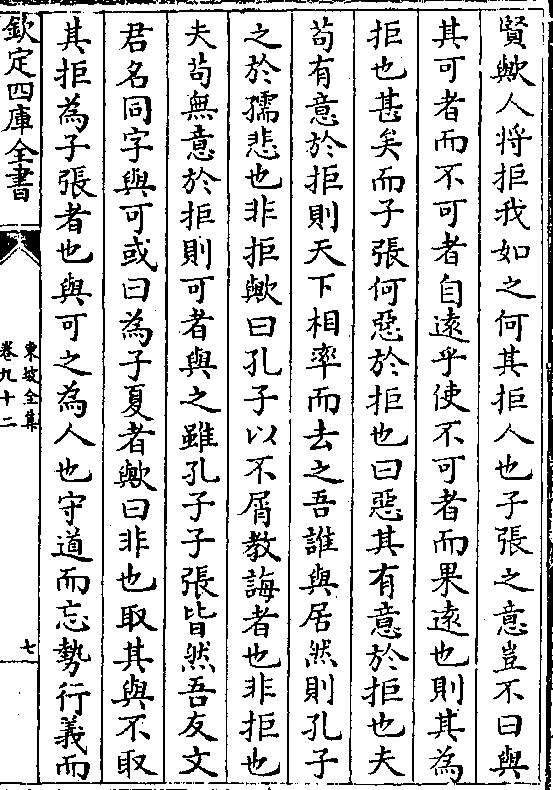 賢歟人将拒我如之何其拒人也子張之意豈不曰與
其可者而不可者自遠乎使不可者而果遠也則其為
拒也甚矣而子張何惡於拒也曰惡其有意於拒也夫
苟有意於拒則天下相率而去之吾誰與居然則孔子
之於孺悲也非拒歟曰孔子以不屑教誨者也非拒也
夫苟無意於拒則可者與之雖孔子子張皆然吾友文
君名同字與可或曰為子夏者歟曰非也取其與不取
其拒為子張者也與可之為人也守道而忘勢行義而
欽定四庫全書
東坡全集
卷九十二
七